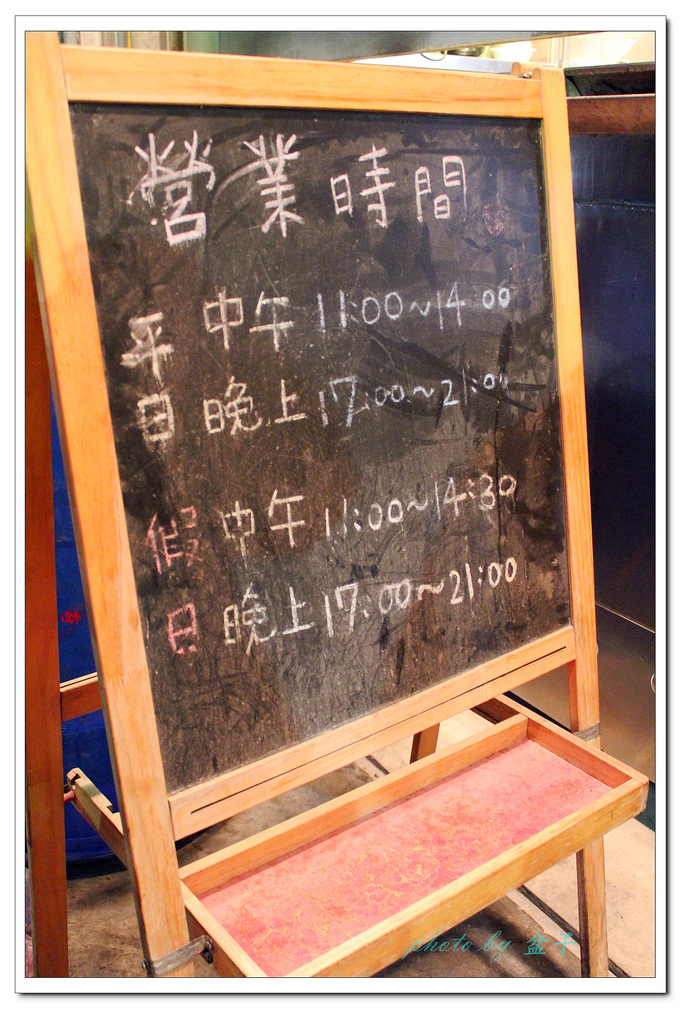 營業時間
平日
中午 11:00~14:00
晚上 17:00~21:00
假日
中午 11:00~14:30
晚上 17:00~21:00
photo by 盆干